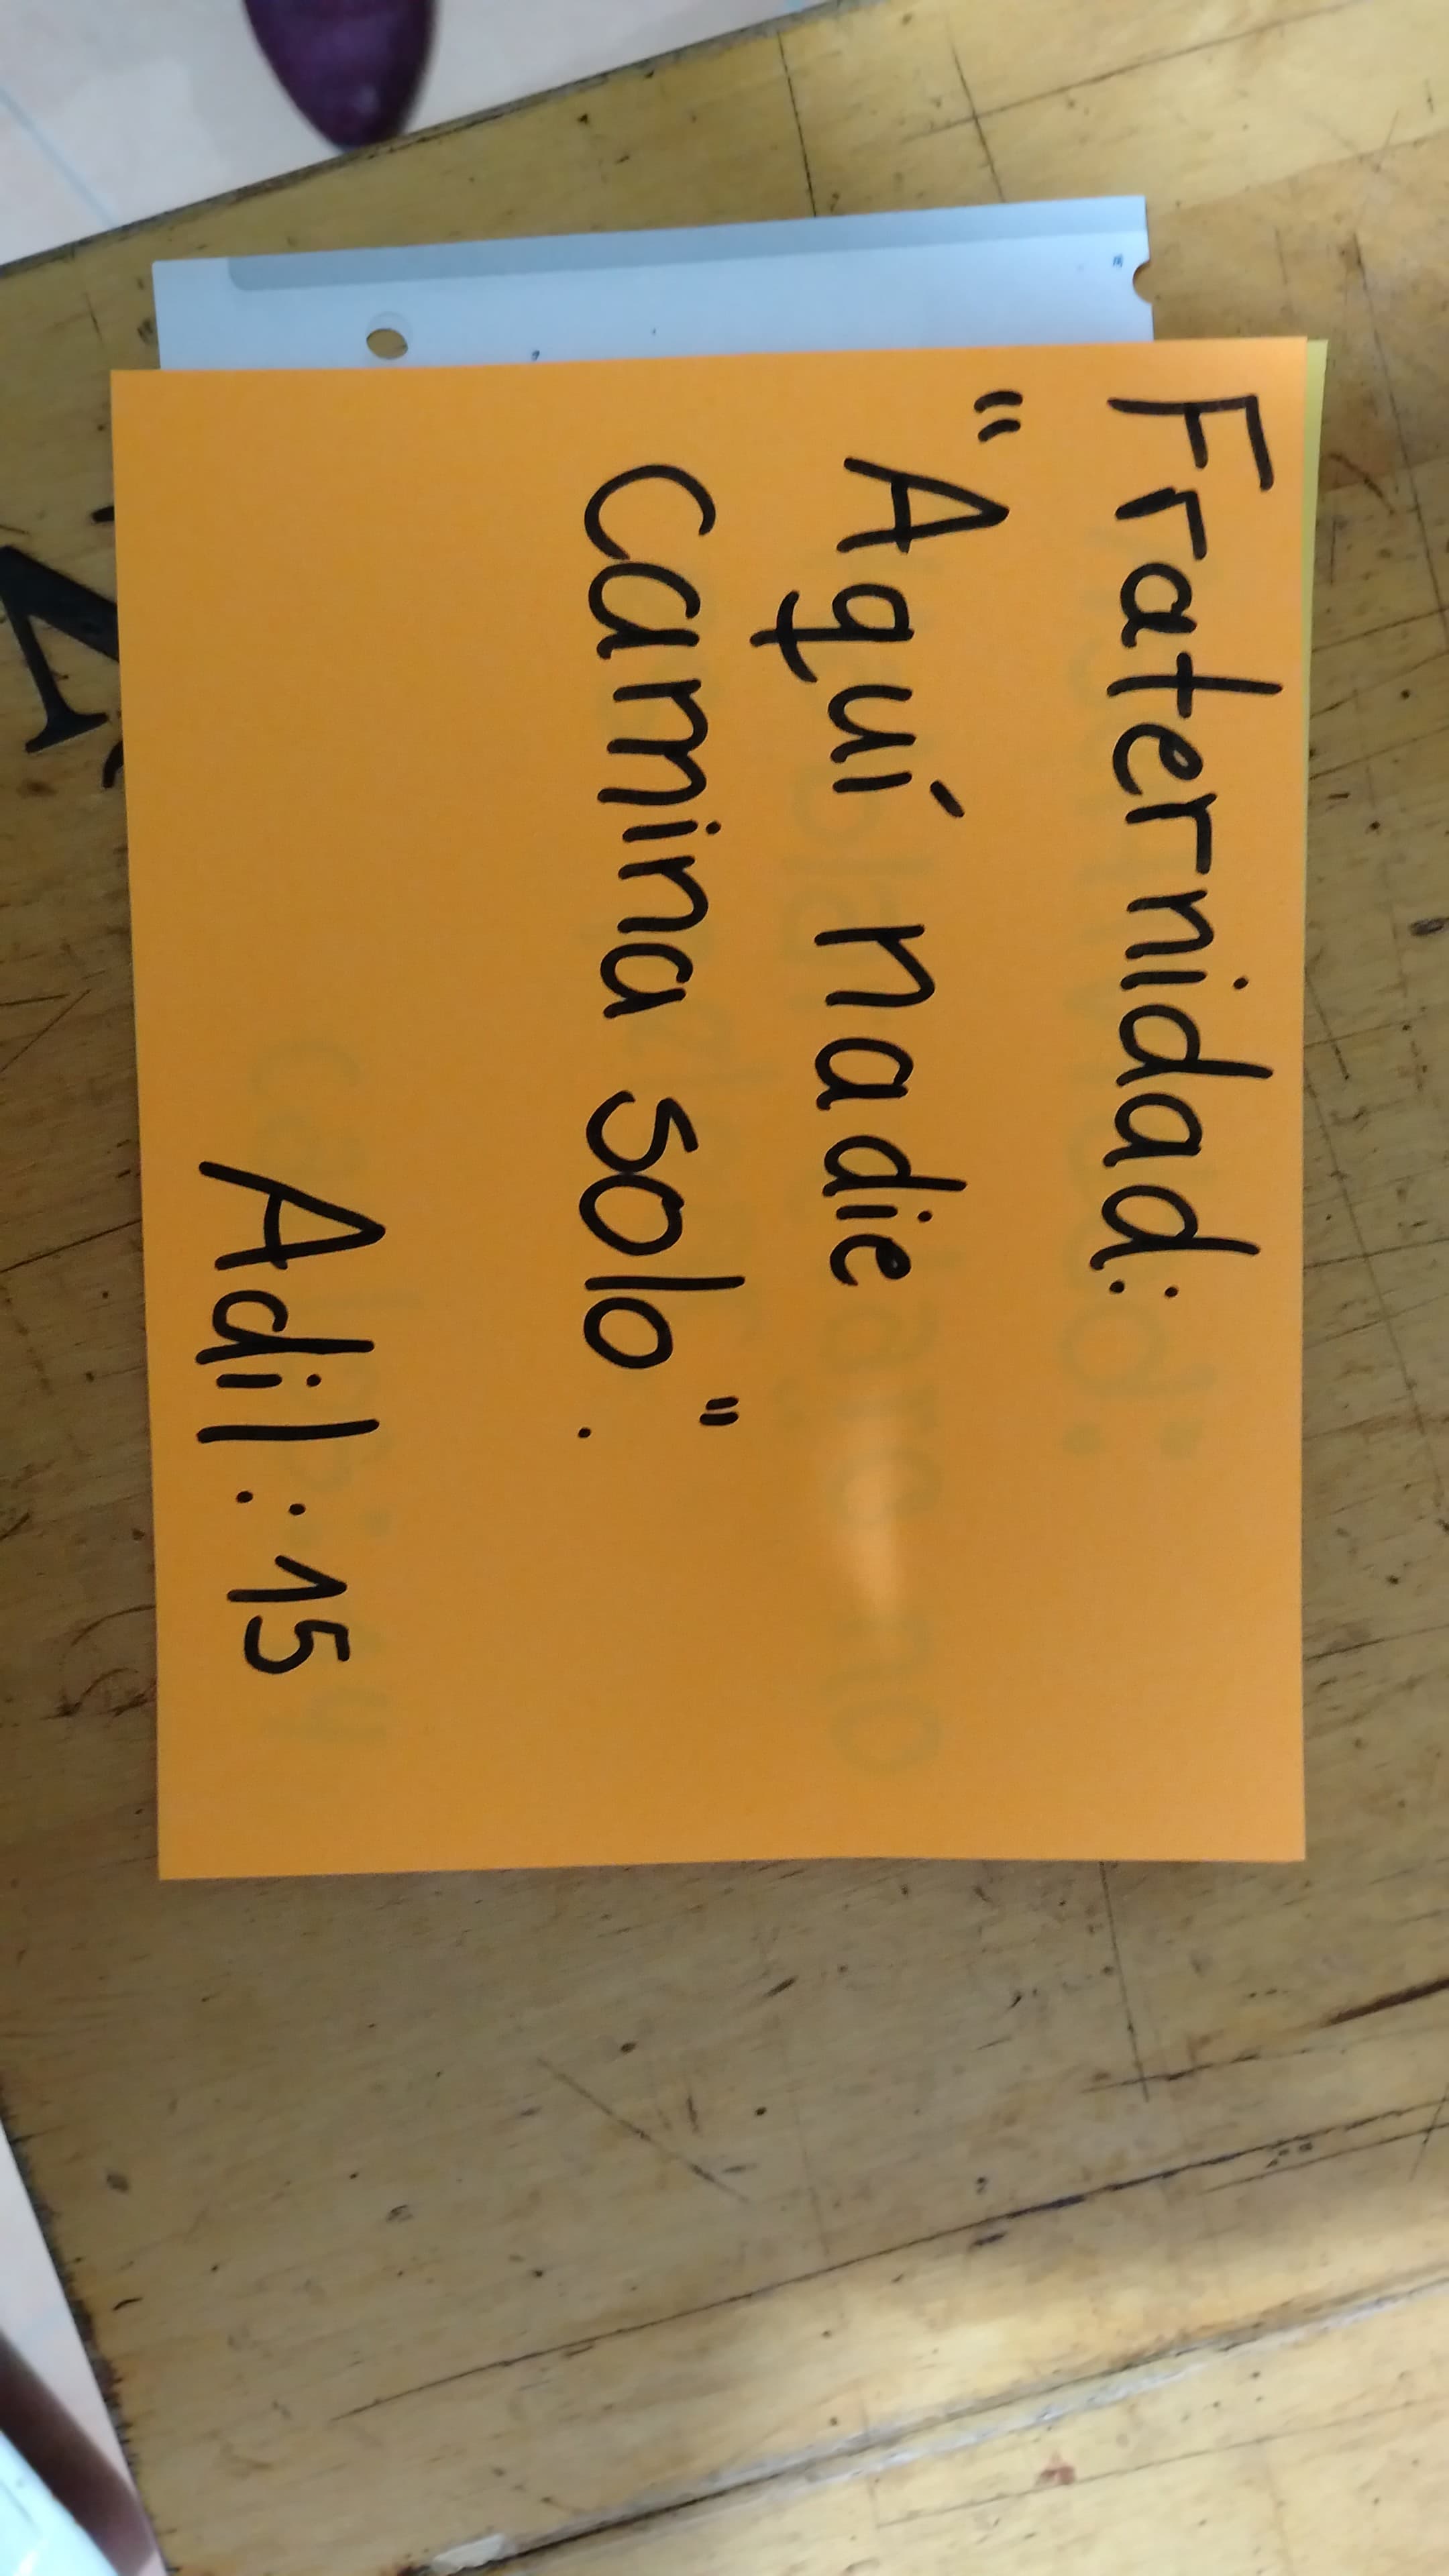 Fraternidad:
"Aquí nadie
camina solo".
Adil: 15